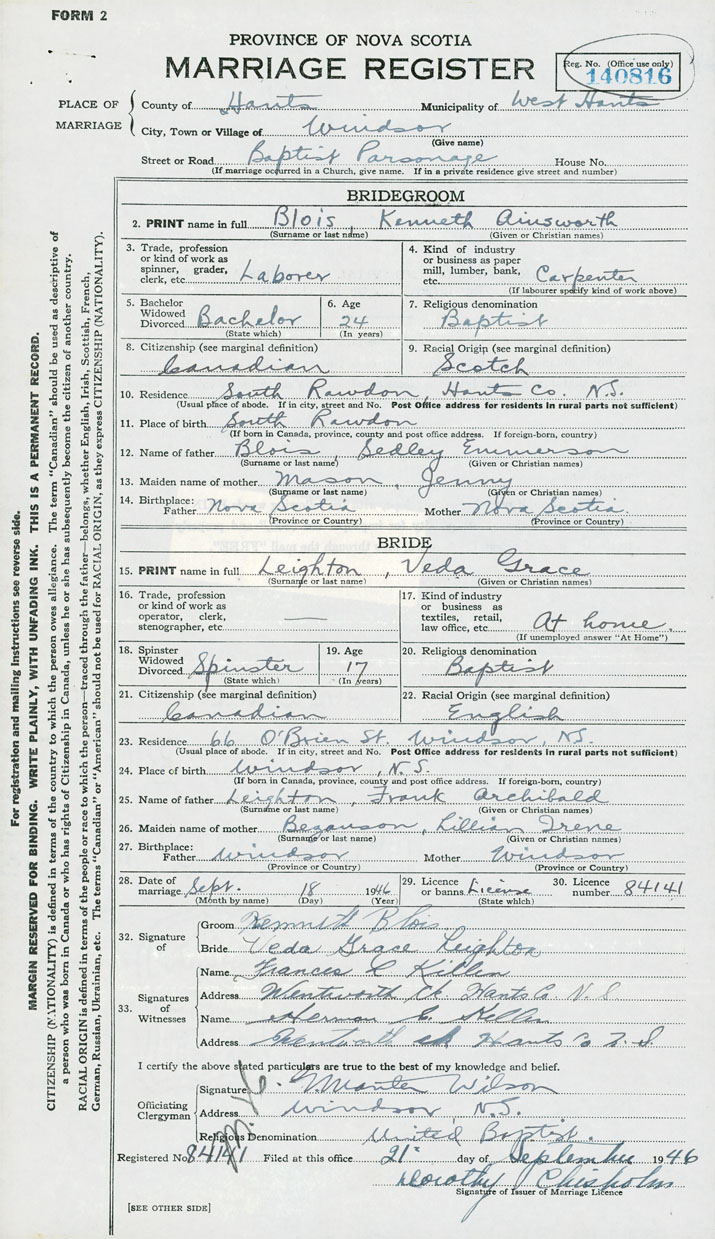 FORM 2
PROVINCE OF NOVA SCOTIA
MARRIAGE REGISTER
Reg. No. (Office use only)
140816
PLACE OF MARRIAGE
County of Hants Municipality of West Hants
City, Town or Village of Windsor
(Give name)
Street or Road Baptist Parsonage House No.
(If marriage occurred in a Church, give name. If in a private residence give street and number)
BRIDEGROOM
2. PRINT name in full Blois, Kenneth Ainsworth
(Surname or last name) (Given or Christian names)
3. Trade, profession or kind of work as spinner, grader, clerk, etc. Laborer
4. Kind of industry or business as paper mill, lumber, bank, etc. Carpenter
(If labourer specify kind of work above)
5. Bachelor Widowed Divorced Bachelor
(State which)
6. Age 24
(In years)
7. Religious denomination
Baptist
8. Citizenship (see marginal definition)
Canadian
9. Racial Origin (see marginal definition)
Scotch
10. Residence South Rawdon, Hants Co. N.S.
(Usual place of abode. If in city, street and No. Post Office address for residents in rural parts not sufficient)
11. Place of birth South Rawdon
(If born in Canada, province, county and post office address. If foreign-born, country)
12. Name of father Blois, Sedley Emmerson
(Surname or last name) (Given or Christian names)
13. Maiden name of mother Mason, Jenny
(Surname or last name) (Given or Christian names)
14. Birthplace: Father Nova Scotia Mother Nova Scotia.
(Province or Country) (Province or Country)
BRIDE
15. PRINT name in full Leighton, Veda Grace
(Surname or last name) (Given or Christian names)
16. Trade, profession or kind of work as operator, clerk, stenographer, etc. —
17. Kind of industry or business as textiles, retail, law office, etc. At home.
(If unemployed answer "At Home")
18. Spinster Widowed Divorced Spinster
(State which)
19. Age 17
(In years)
20. Religious denomination
Baptist
21. Citizenship (see marginal definition)
Canadian
22. Racial Origin (see marginal definition)
English
23. Residence 66 O'Brien St. Windsor, N.S.
(Usual place of abode. If in city, street and No. Post Office address for residents in rural parts not sufficient)
24. Place of birth Windsor, N.S.
(If born in Canada, province, county and post office address. If foreign-born, country)
25. Name of father Leighton, Frank Archibald
(Surname or last name) (Given or Christian names)
26. Maiden name of mother Bezanson, Lillian Irene
(Surname or last name) (Given or Christian names)
27. Birthplace: Father Windsor Mother Windsor
(Province or Country) (Province or Country)
28. Date of marriage Sept. 18 1946
(Month by name) (Day) (Year)
29. Licence or banns License
(State which)
30. Licence number 84141
32. Signature of
Groom Kenneth Blois
Bride Veda Grace Leighton
33. Signatures of Witnesses
Name Frances C Killen
Address Wentworth Ck Hants Co. N.S
Name Herman C. Killen
Address Wentworth Ck Hants Co N.S.
I certify the above stated particulars are true to the best of my knowledge and belief.
Officiating Clergyman
Signature Manter Wilson
Address Windsor N.S.
Religious Denomination United Baptist.
Registered No. 84141 Filed at this office 21st day of September 1946
Dorothy Chisholm
Signature of Issuer of Marriage Licence
[SEE OTHER SIDE]
For registration and mailing instructions see reverse side.
MARGIN RESERVED FOR BINDING. WRITE PLAINLY, WITH UNFADING INK. THIS IS A PERMANENT RECORD.
CITIZENSHIP (NATIONALITY) is defined in terms of the country to which the person owes allegiance. The term "Canadian" should be used as descriptive of
a person who was born in Canada or who has rights of Citizenship in Canada, unless he or she has subsequently become the citizen of another country.
RACIAL ORIGIN is defined in terms of the people or race to which the person—traced through the father—belongs, whether English, Irish, Scottish, French,
German, Russian, Ukrainian, etc. The terms "Canadian" or "American" should not be used for RACIAL ORIGIN, as they express CITIZENSHIP (NATIONALITY).